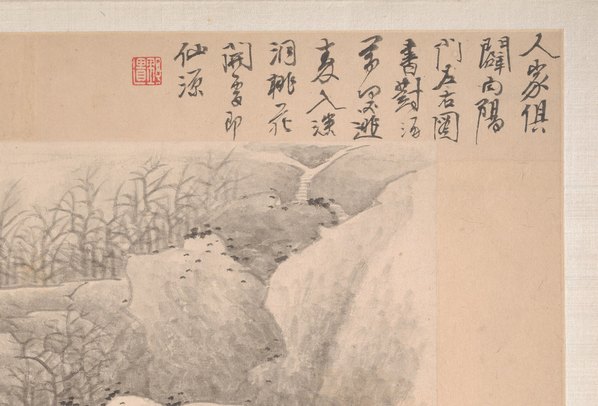 人家俱
闢向陽
門左右圖
書對酒
尊避
秦入深
洞桃花
開處即
仙源